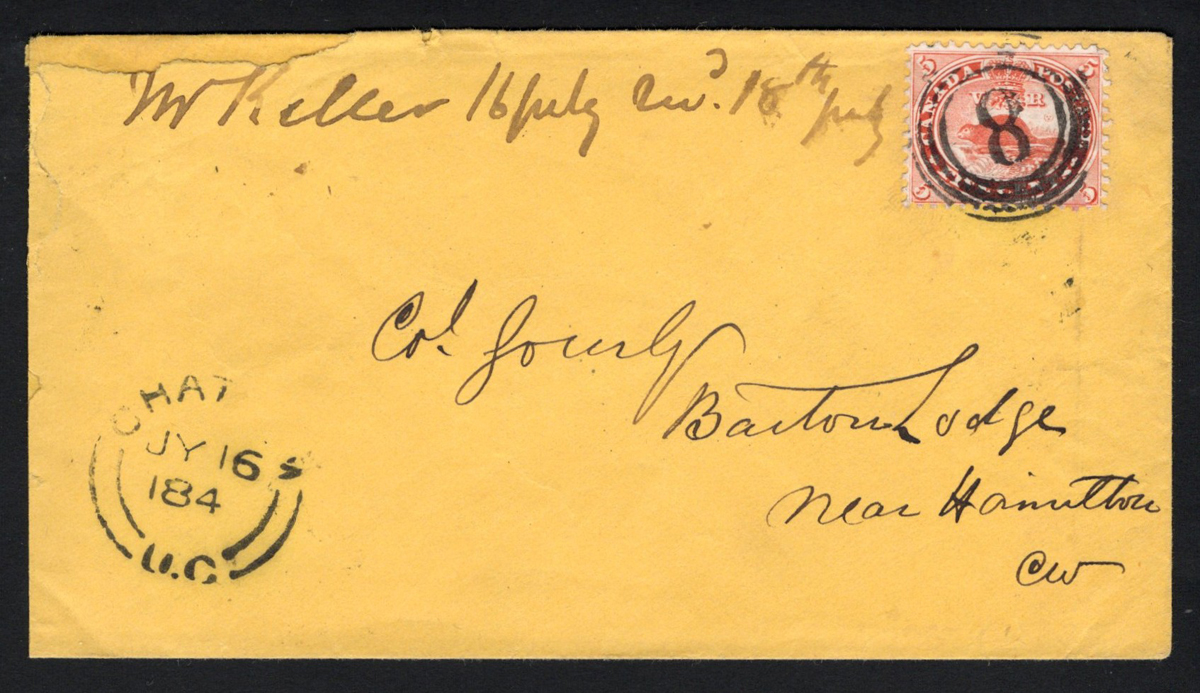 Mr Keller 16 July recd. 18th July
5 CANADA POSTAGE 5
V R
8
5 5
Col. Gourly
Barton Lodge
near Hamilton
CW
CHAT S
JY 16
184
U.C